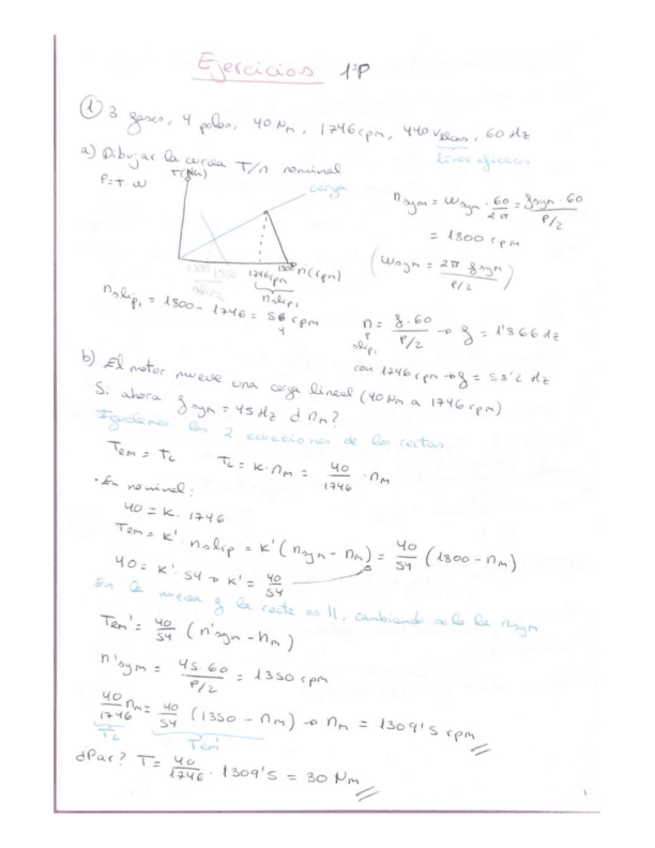 Ejercicios 1ºP
① 3 fases, 4 polos, 40 Nm, 1746 rpm, 440 Velicas, 60 Hz
línea eficaces
a) Dibujar la curva T/n nominal
P = T·ω
T(Nm)
carga
n sym = ωsym · 60/2π = fsym · 60 / P/2
= 1800 rpm
(ωsym = 2π fsym / P/2)
1746rpm 1800 n(rpm)
nslip1
nslip1 = 1800 - 1746 = 54 rpm
n slip1 = f·60 / P/2 → f = 1'866 Hz
con 1746 rpm → f = 58'2 Hz
b) El motor mueve una carga lineal (40 Nm a 1746 rpm)
Si ahora fsym = 45 Hz ¿nm?
Igualamos las 2 ecuaciones de las rectas
Tem = TL TL = K·nm = 40/1746 · nm
· En nominal:
40 = K · 1746
Tem = K' · nslip = K' (nsym - nm) = 40/54 (1800 - nm)
40 = K' · 54 → K' = 40/54
En la nueva f la recta es ||, cambiando solo la nsym
Tem' = 40/54 (n'sym - nm)
n'sym = 45·60 / P/2 = 1350 rpm
40/1746 nm = 40/54 (1350 - nm) → nm = 1309'5 rpm
TL Tem'
¿Par? T = 40/1746 · 1309'5 = 30 Nm